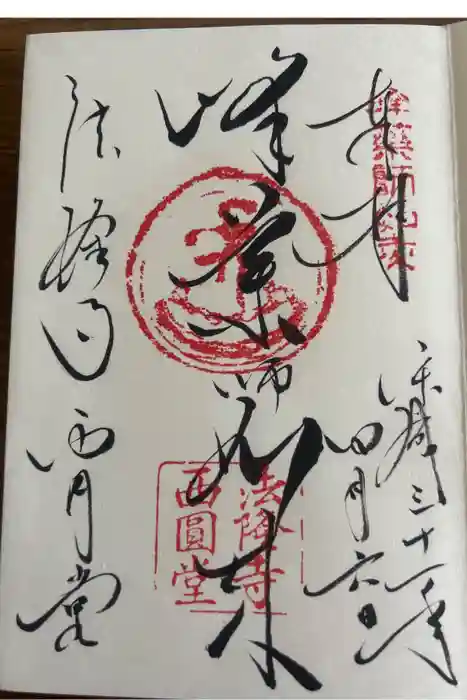 奉拝
峰薬師如来
平成三十一年
四月六日
峰薬師如来
法隆寺
西円堂
法隆寺
西圓堂